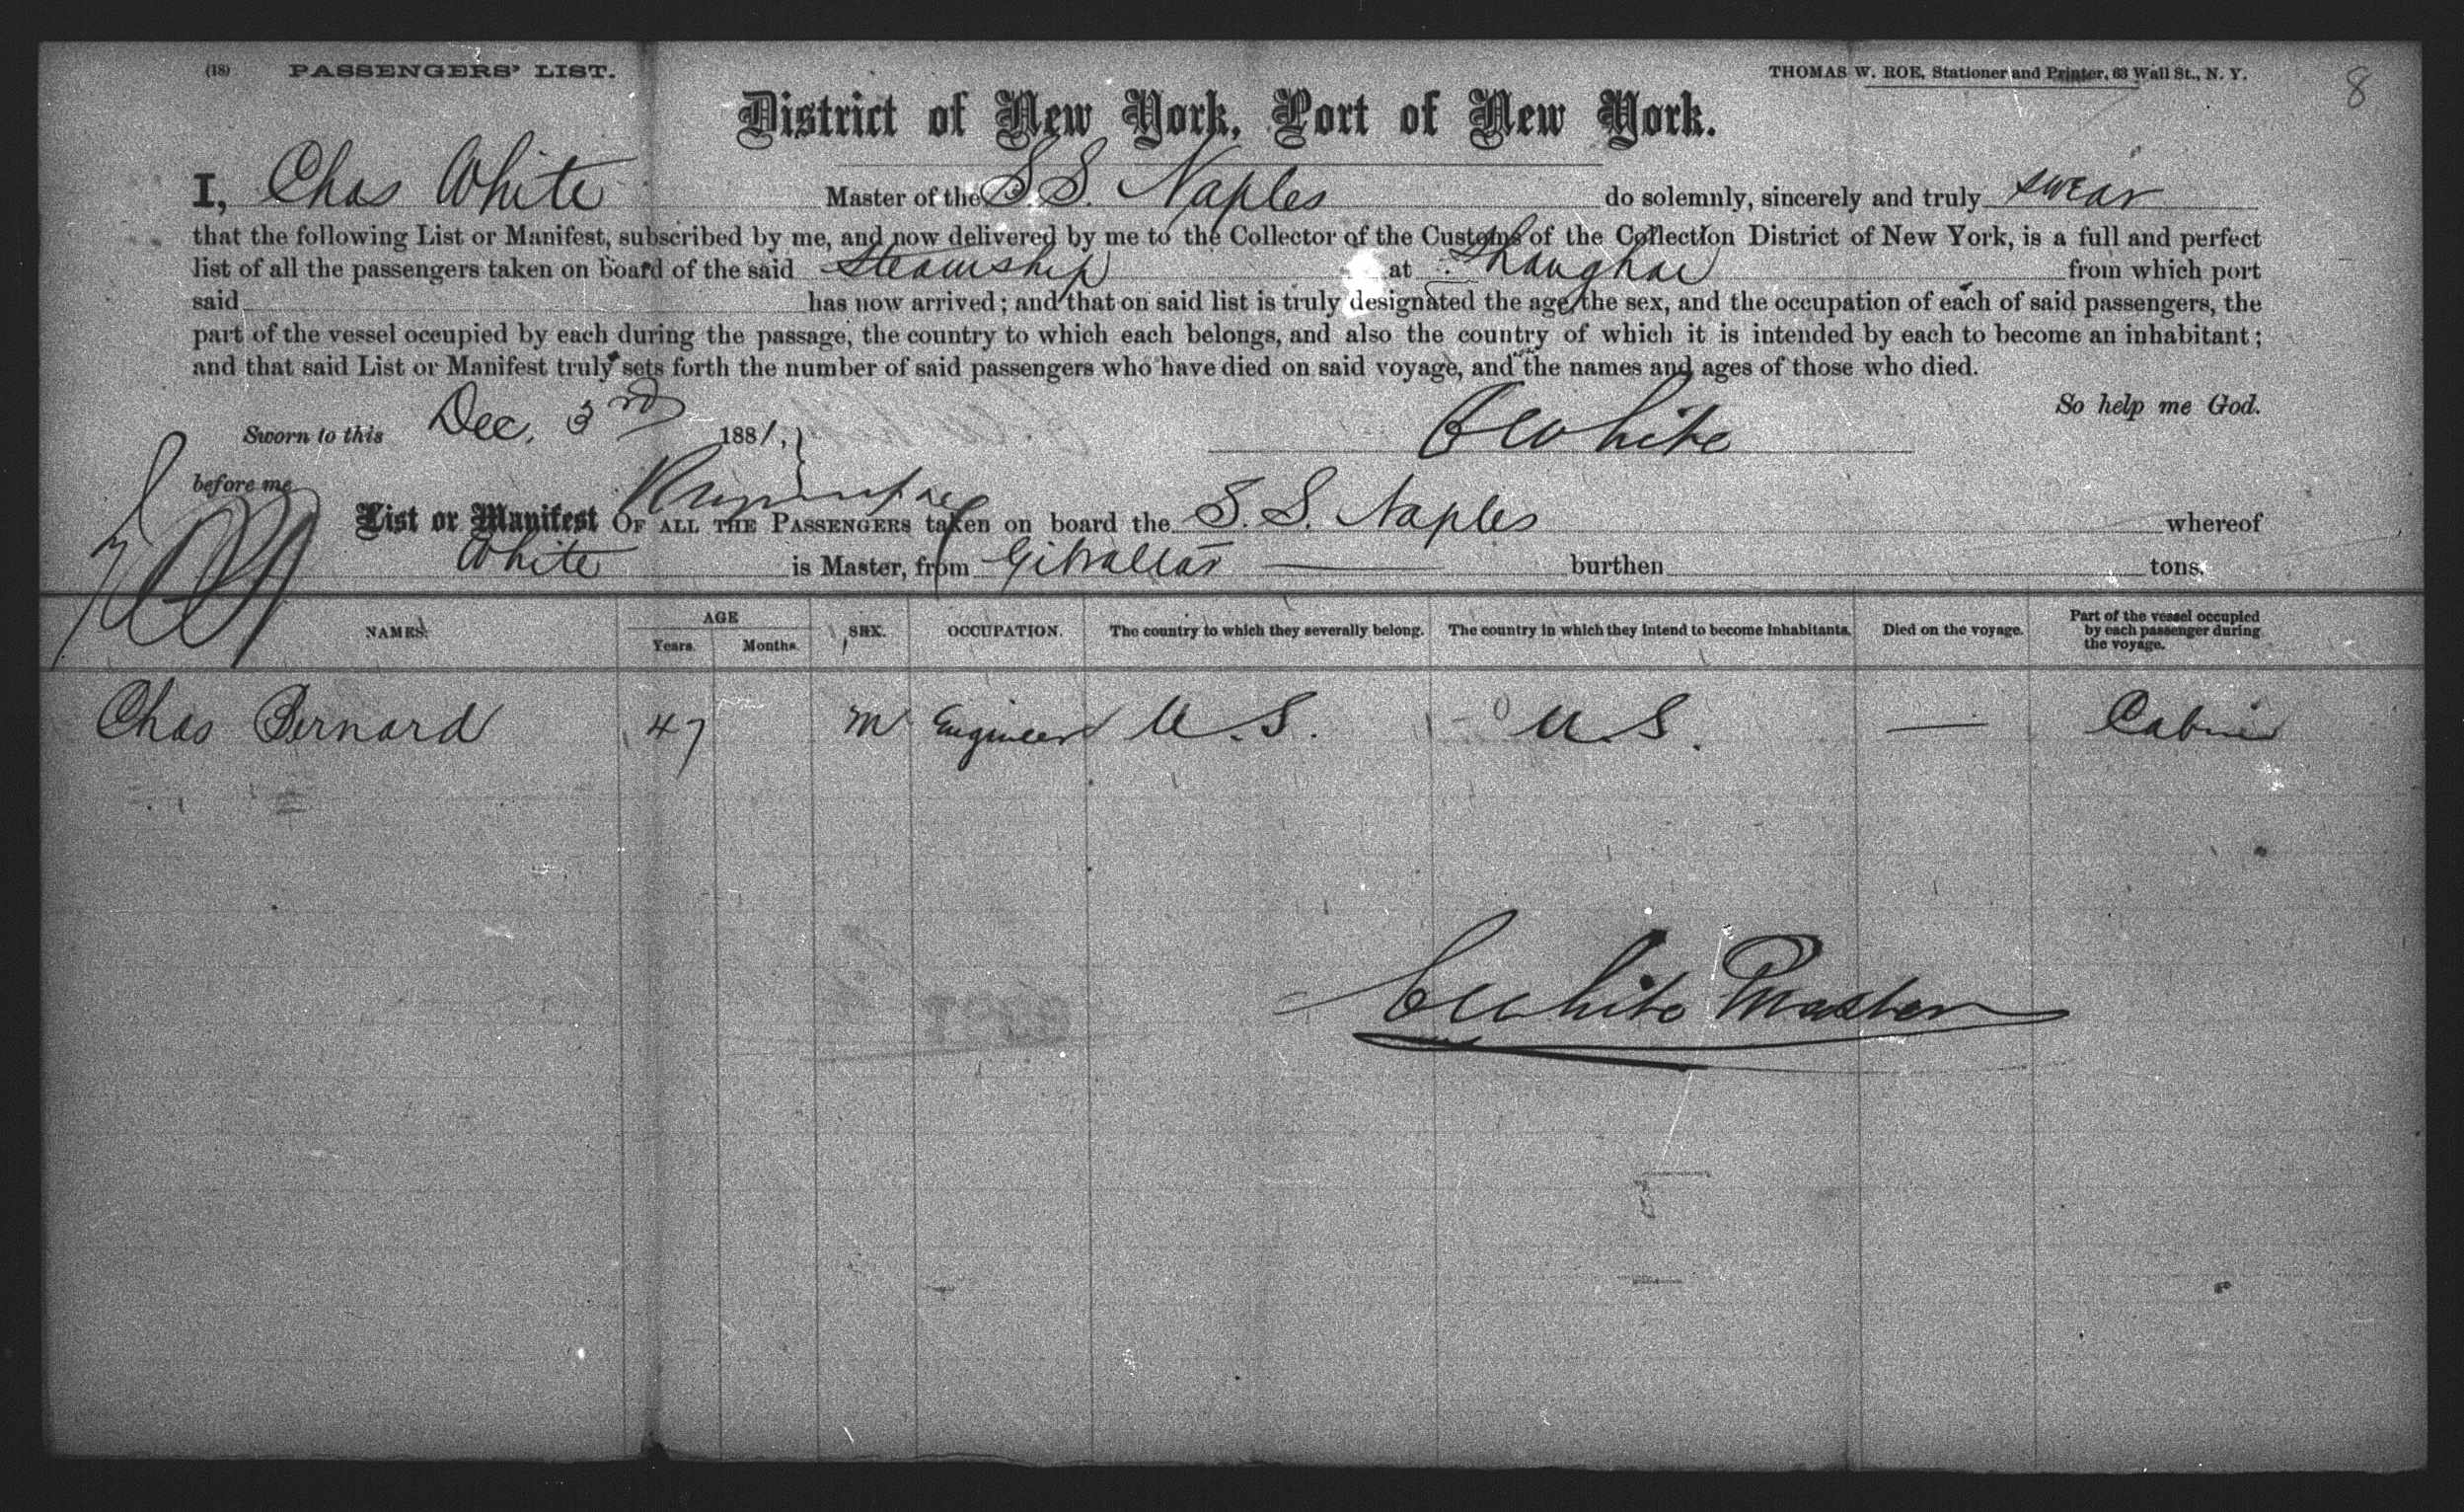 (18) PASSENGERS' LIST. THOMAS W. ROE, Stationer and Printer, 63 Wall St., N. Y. 8
District of New York, Port of New York.
I, Chas White Master of the S.S. Naples do solemnly, sincerely and truly swear
that the following List or Manifest, subscribed by me, and now delivered by me to the Collector of the Customs of the Collection District of New York, is a full and perfect
list of all the passengers taken on board of the said Steamship at Shanghai from which port
said has now arrived; and that on said list is truly designated the age, the sex, and the occupation of each of said passengers, the
part of the vessel occupied by each during the passage, the country to which each belongs, and also the country of which it is intended by each to become an inhabitant;
and that said List or Manifest truly sets forth the number of said passengers who have died on said voyage, and the names and ages of those who died.
So help me God.
Sworn to this Dec. 3rd 1881, C White
before me
List or Manifest OF ALL THE PASSENGERS taken on board the S. S. Naples whereof
White is Master, from Gibraltar burthen tons.
NAMES. AGE Years. Months. SEX. OCCUPATION. The country to which they severally belong. The country in which they intend to become inhabitants. Died on the voyage. Part of the vessel occupied by each passenger during the voyage.
Chas Bernard 47 M Engineer U.S. U.S. — Cabin
C White Master